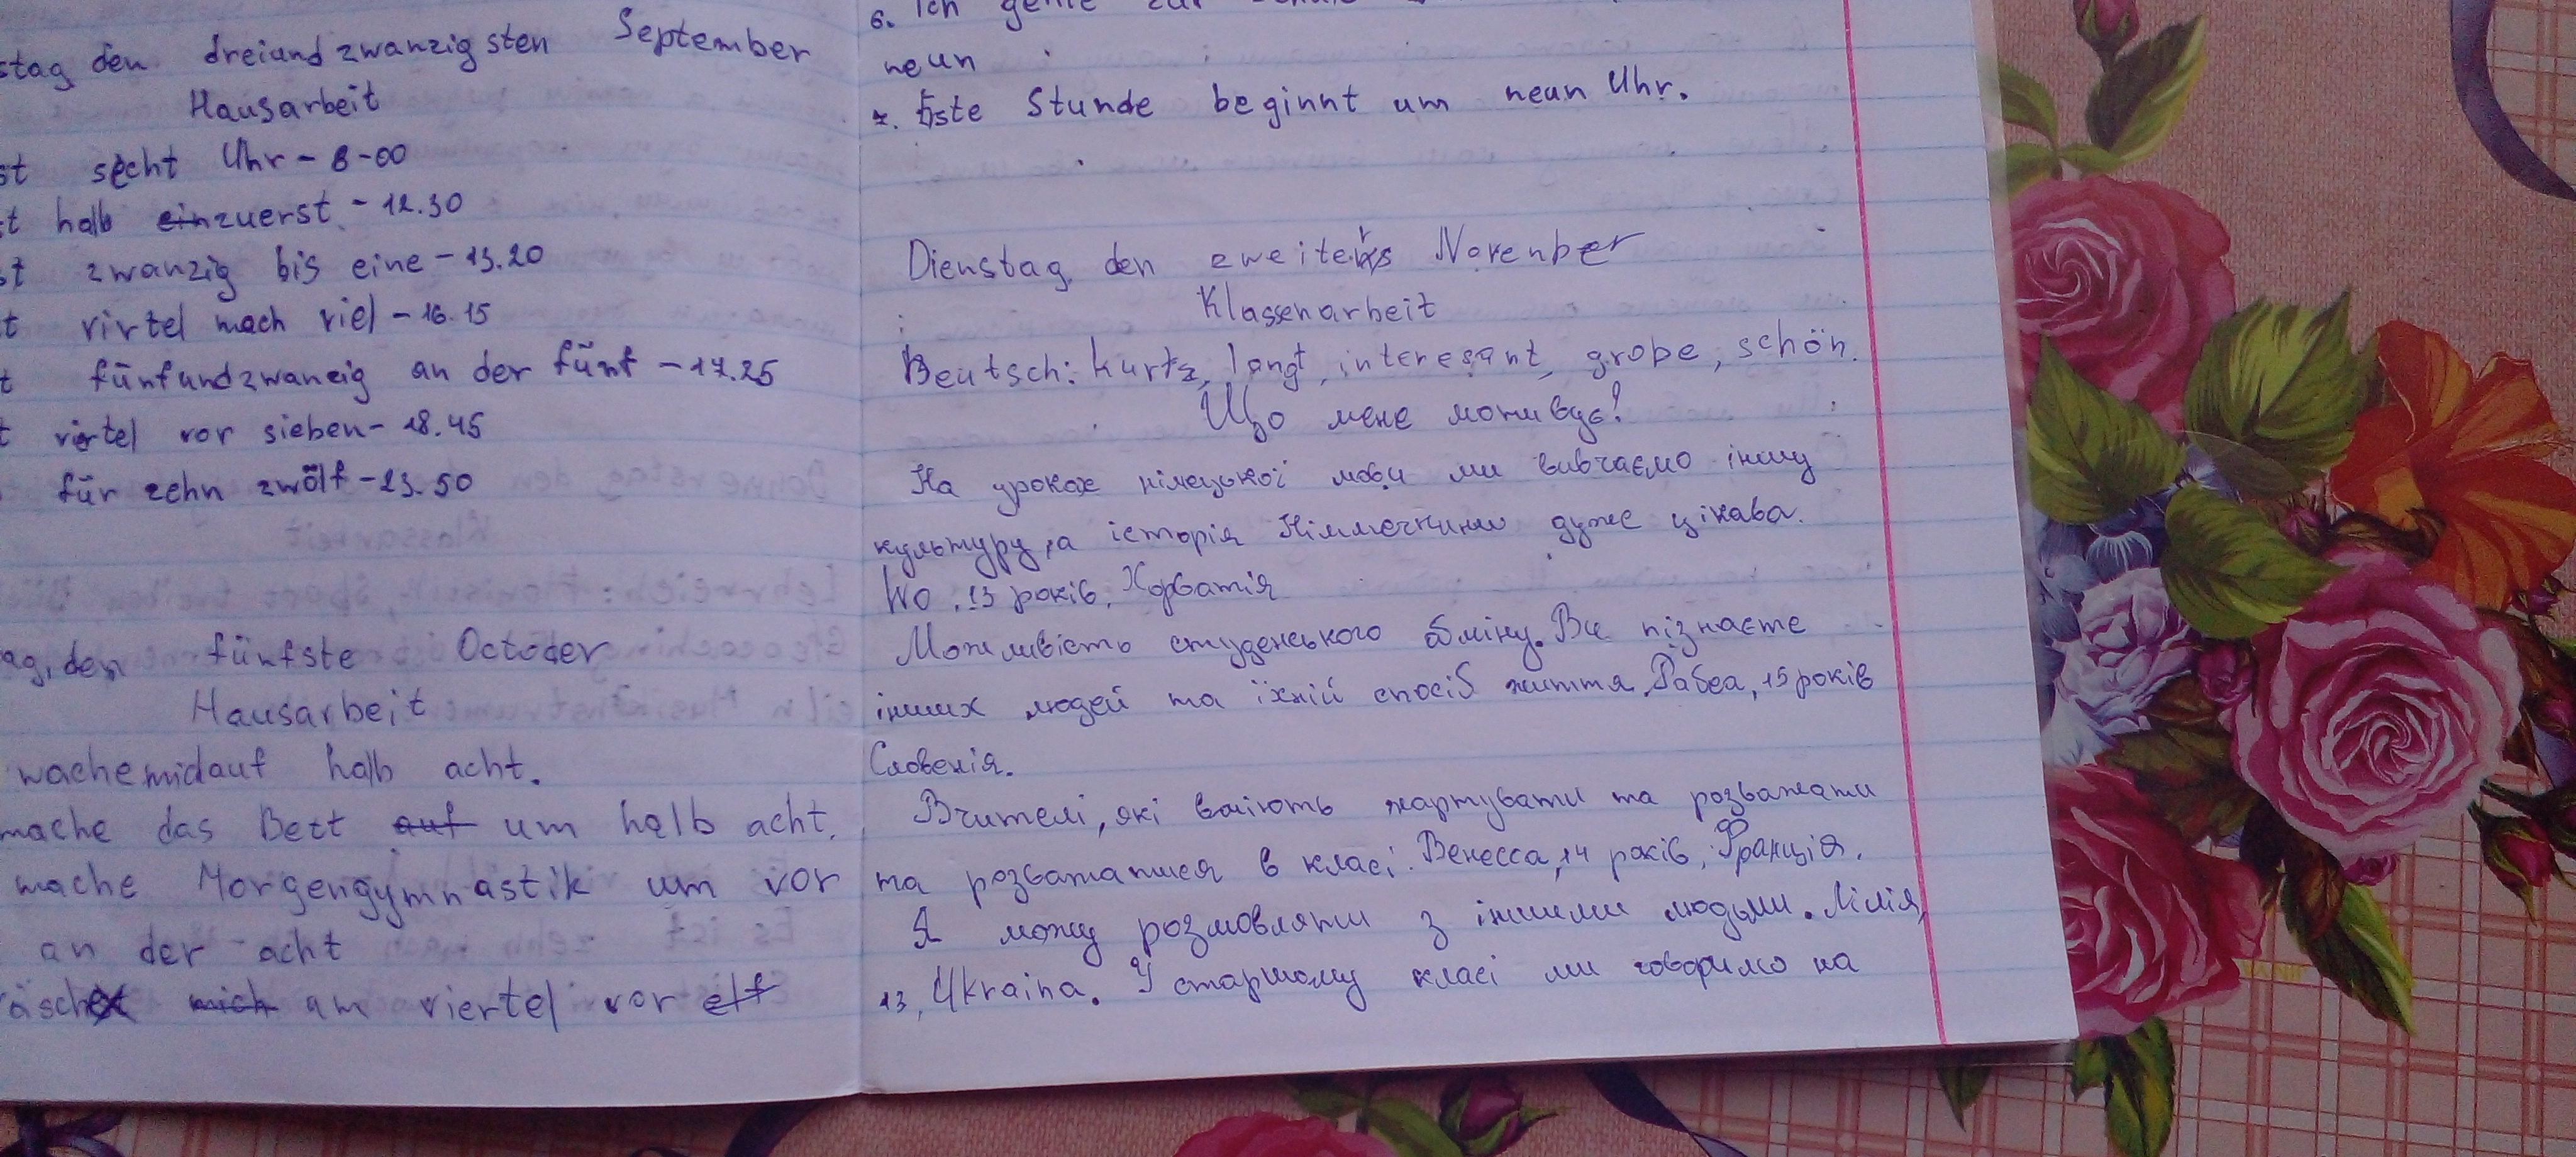 stag den dreiundzwanzigsten September
Hausarbeit
st secht Uhr - 8-00
t halb einzuerst - 12.30
st zwanzig bis eine - 13.20
t virtel mach viel - 16.15
t fünfundzwanzig an der fünf - 17.25
t viertel vor sieben - 18.45
für zehn zwölf - 23.50
ag, den fünfste October
Hausarbeit
wachemidauf halb acht.
mache das Bett auf um halb acht.
mache Morgengymnastik um vor
an der acht
äsche mich am viertel vor elf
6. Ich gehe zur Schule
neun
7. Erste Stunde beginnt um neun Uhr.
Dienstag, den zweiten November
Klassenarbeit
Deutsch: kurtz, langt, interesant, grobe, schön.
Що мене мотивує?
На уроках німецької мови ми вивчаємо іншу
культуру, а історія Німмеччини дуже цікава.
Wo, 15 років, Хорватія
Можливість студенського обміну. Ви пізнаєте
інших людей та їхній спосіб життя, Рабеа, 15 років
Словенія.
Вчителі, які вміють жартувати та розважати
та розважатися в класі. Венесса, 14 років, Франція.
Я можу розмовляти з іншими людьми. Лілія,
13, Ukraina. У старшому класі ми говоримо на